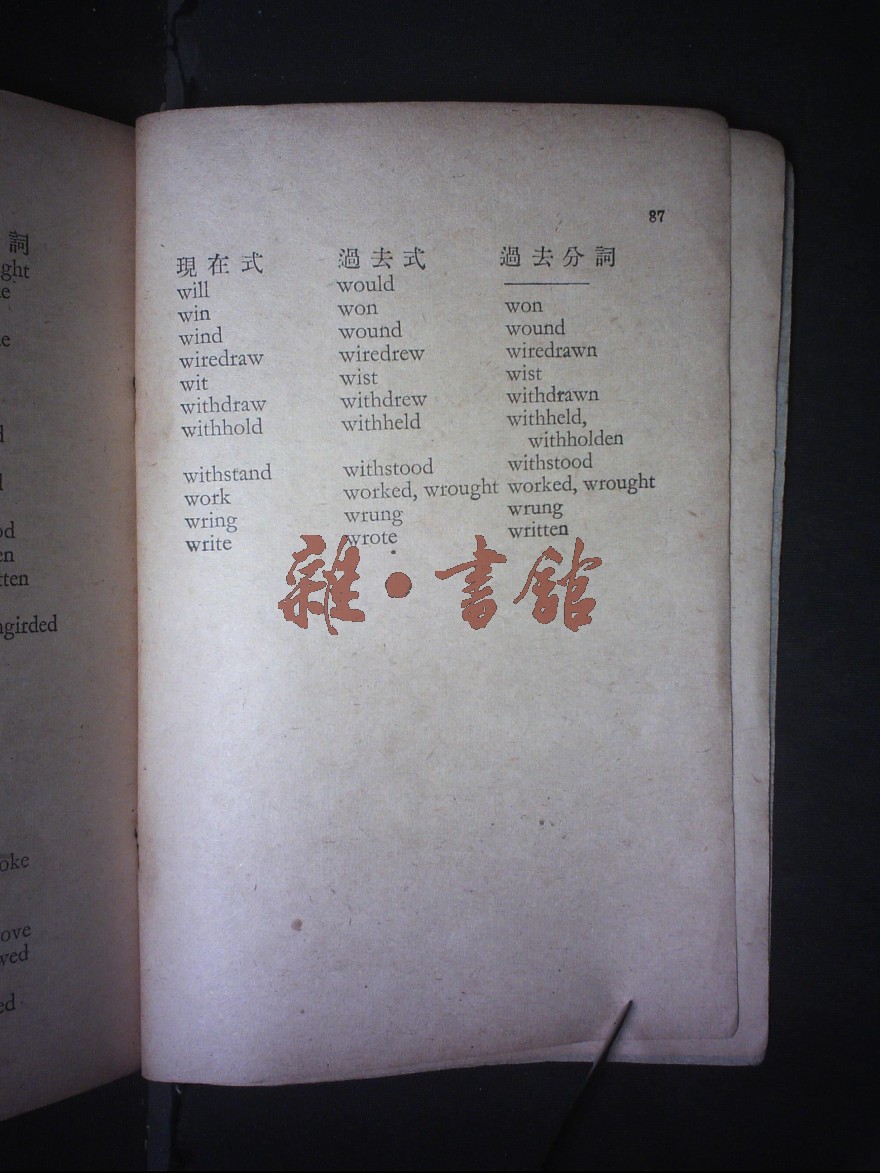 87
現在式 過去式 過去分詞
will would
win won won
wind wound wound
wiredraw wiredrew wiredrawn
wit wist wist
withdraw withdrew withdrawn
withhold withheld withheld,
withholden
withstand withstood withstood
work worked, wrought worked, wrought
wring wrung wrung
write wrote written
雜·書館
詞
ght
oke
ove
ngirded